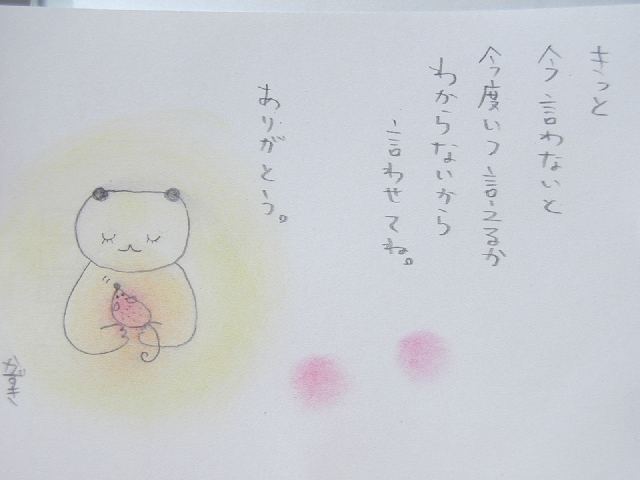 きっと
今言わないと
今度いつ言えるか
わからないから
言わせてね。
ありがとう。